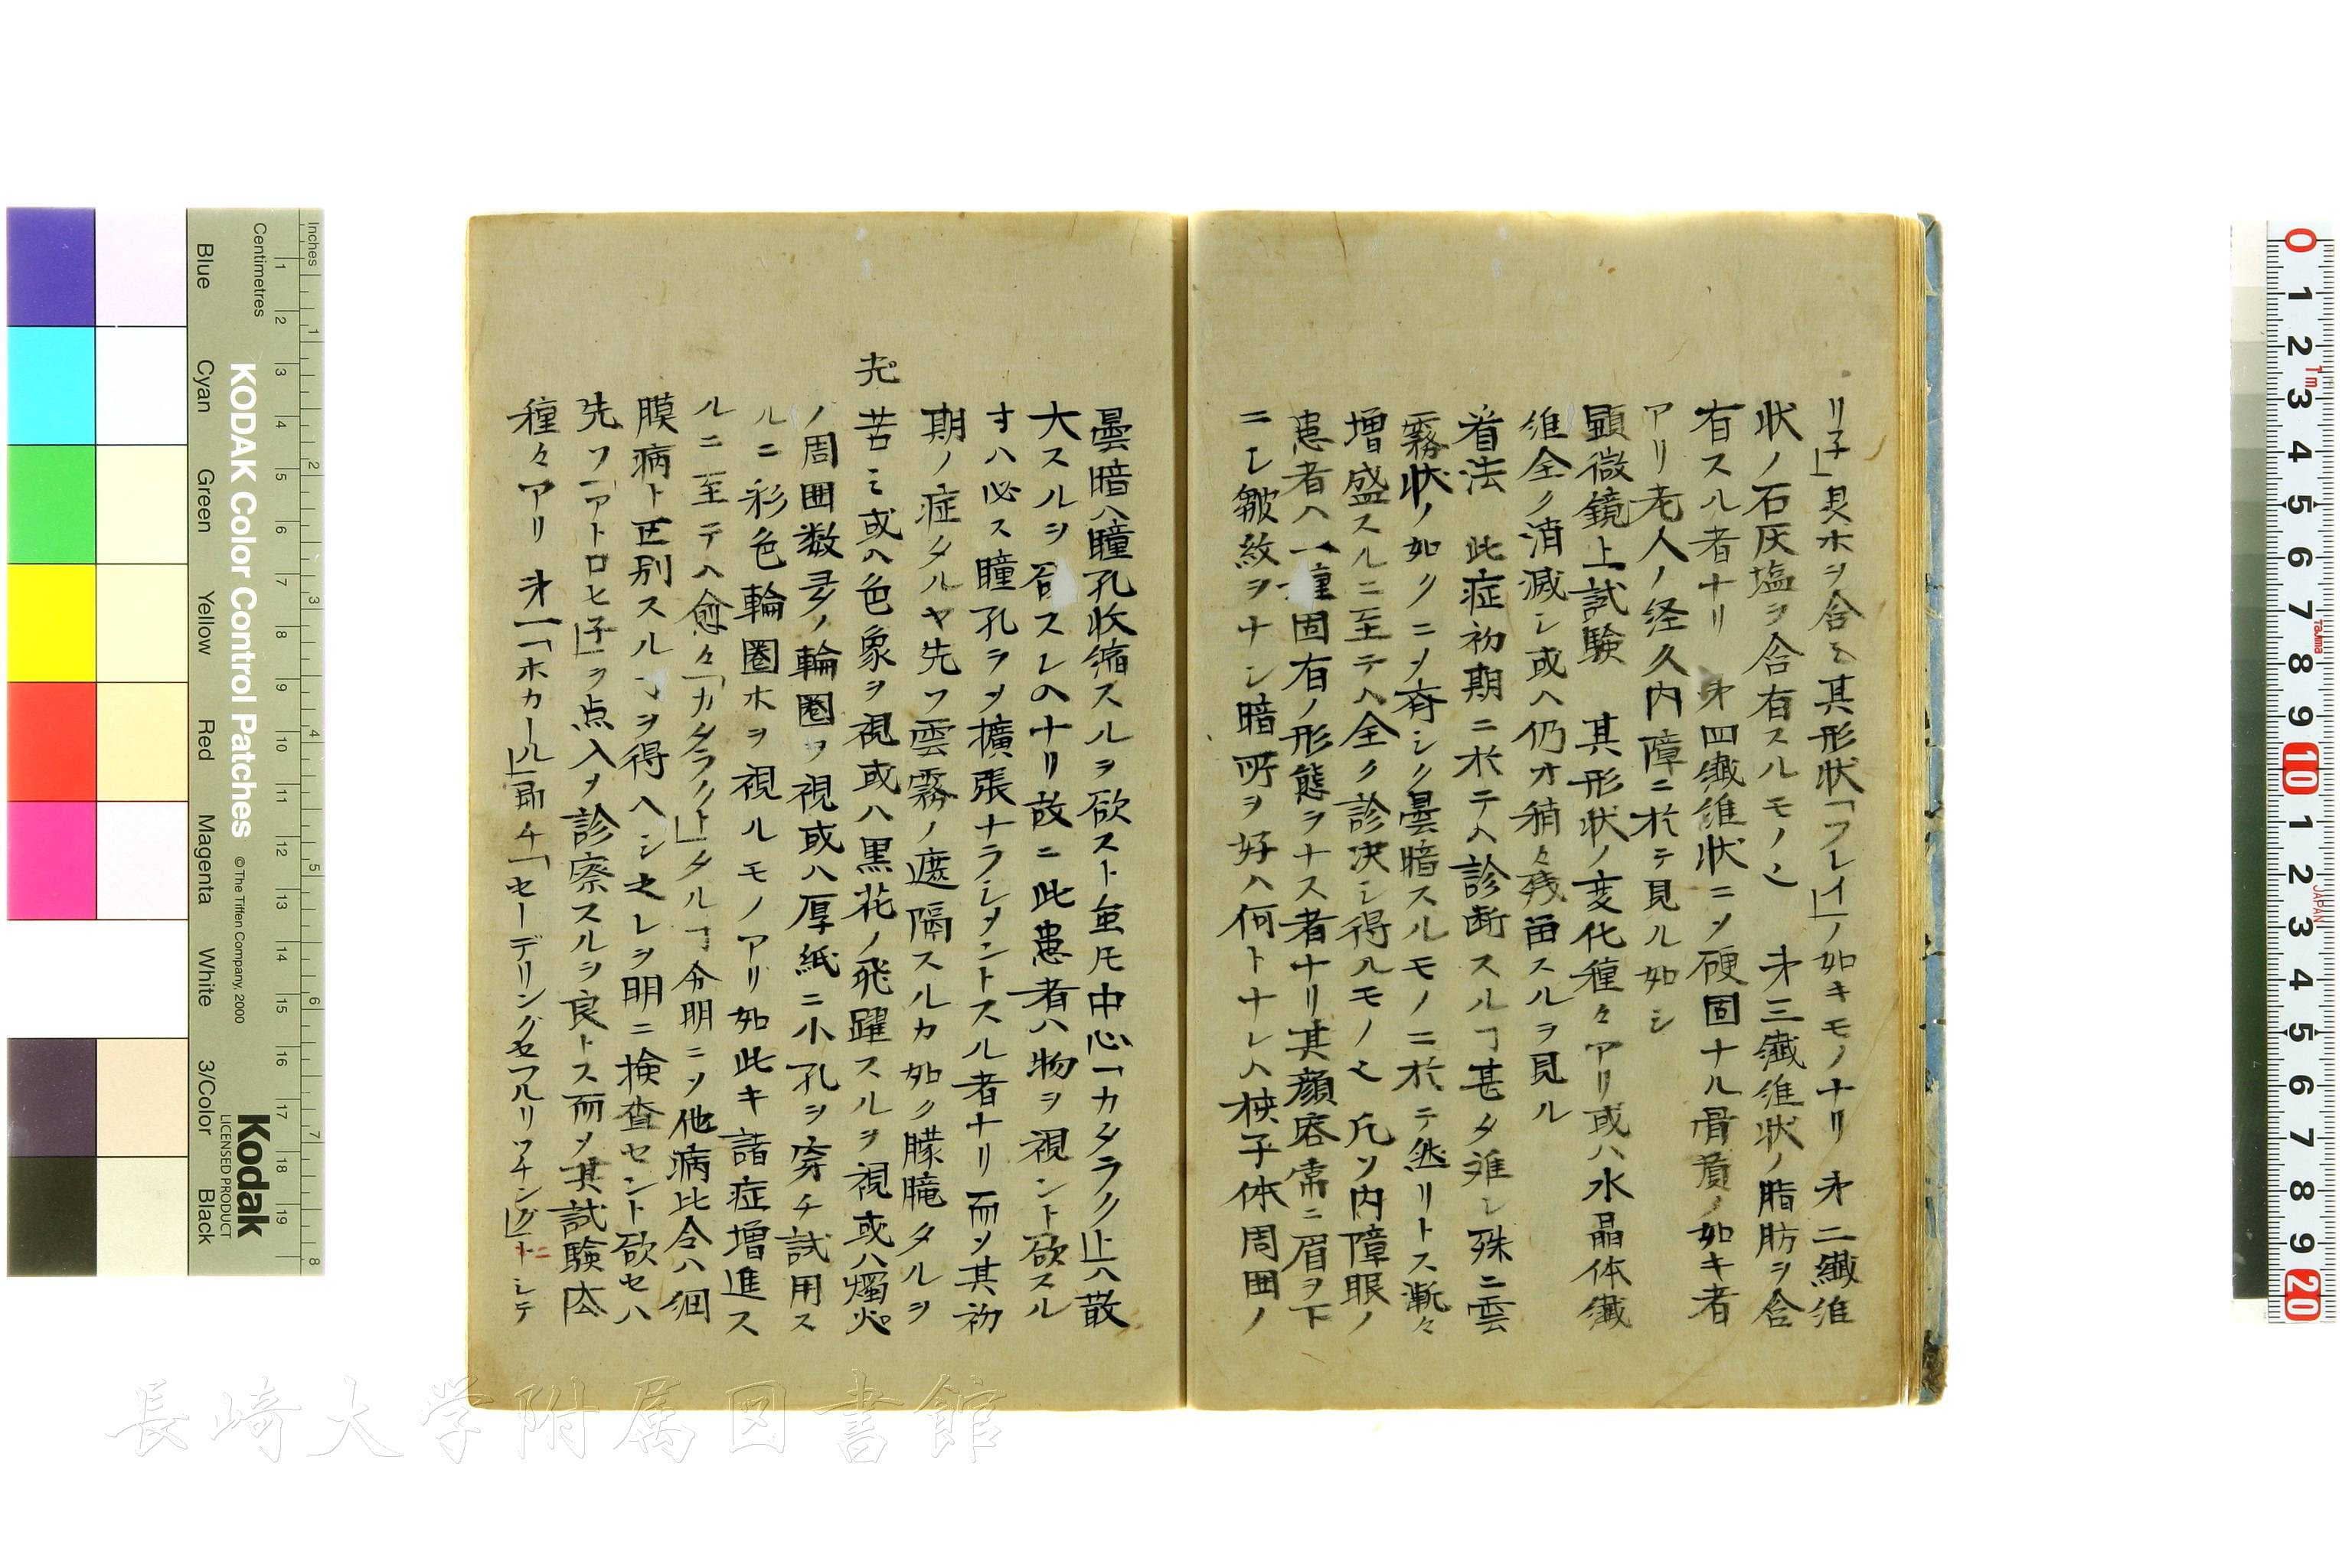 リ子」臭ホヲ含ミ其形状「フレイ」ノ如キモノナリ 㐧二纎維
状ノ石灰塩ヲ含有スルモノ㐧三纎維状ノ脂肪ヲ含
有スル者ナリ 㐧四纎維状ニ〆硬固ナル骨質ノ如キ者
アリ老人ノ経久内障ニ於テ見ル如シ
顕微鏡上試験 其形状ノ変化種々アリ或ハ水晶体纎
維全ク消滅シ或ヘ仍オ稍々残畄スルヲ見ル
着法 此症初期ニ於テヘ診断スルヿ甚タ难シ殊ニ雲
霧状ノ如クニ〆斉シク曇暗スルモノニ於テ然リトス漸々
増盛スルニ至テヘ全ク診决シ得ルモノ 凡ソ内障眼ノ
患者ヘ一種固有ノ形態ヲナス者ナリ其顔容常ニ眉ヲ下
ニシ皺紋ヲナシ暗所ヲ好ハ何トナレハ梜子体周囲ノ
曇暗ハ瞳孔收縮スルヲ欲スト𬼀𪜈中心「カタラクト」ハ散
大スルヲ欲スレハナリ故ニ此患者ハ物ヲ視ント欲スル
ナハ必ス瞳孔ヲ〆擴張ナラシ〆ントスル者ナリ而〆其初
期ノ症タルヤ先ツ雲霧ノ遮隔スルカ如ク朦朧タルヲ
苦ミ或ハ色象ヲ視或ハ黒花ノ飛躍スルヲ視或ハ燭火
光
ノ周囲数多ノ輪圏ヲ視或ハ厚紙ニ小孔ヲ穿チ試用ス
ルニ彩色輪圏ホヲ視ルモノアリ如此キ諸症増進ス
ルニ至テヘ愈々「カタラクト」タルヿ分明ニ〆他病比令ハ網
膜病ト区別スルヿヲ得ヘシ之レヲ明ニ検査セント欲セハ
先ツ「アトロヒ子」ヲ点入〆診察スルヲ良トス而〆其試験法
種々アリ 㐧一「ホカール」即チ「セーデリングセフルリツチング」トシテ
KODAK Color Control Patches
© The Tiffen Company, 2000
Kodak
LICENSED PRODUCT
Inches
Centimetres
Blue
Cyan
Green
Yellow
Red
Magenta
White
3/Color
Black
1 2 3 4 5 6 7 8
1 2 3 4 5 6 7 8 9 10 11 12 13 14 15 16 17 18 19
0 1 2 3 4 5 6 7 8 9 10 1 2 3 4 5 6 7 8 9 20
1m
Tajima
JAPAN
長崎大学附属図書館